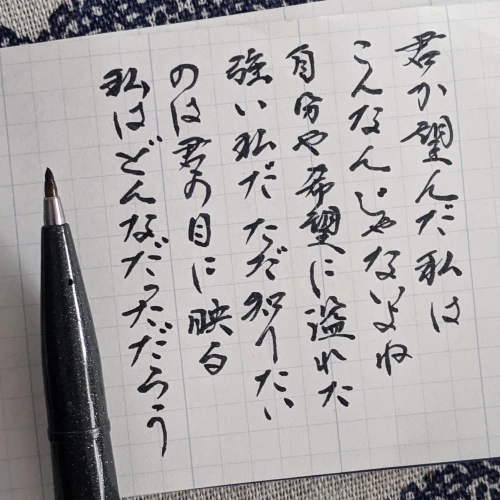 君が望んだ私は
こんなんじゃないよね
自分や希望に溢れた
強い私だ ただ知りたい
のは君の目に映る
私はどんなだっただろう